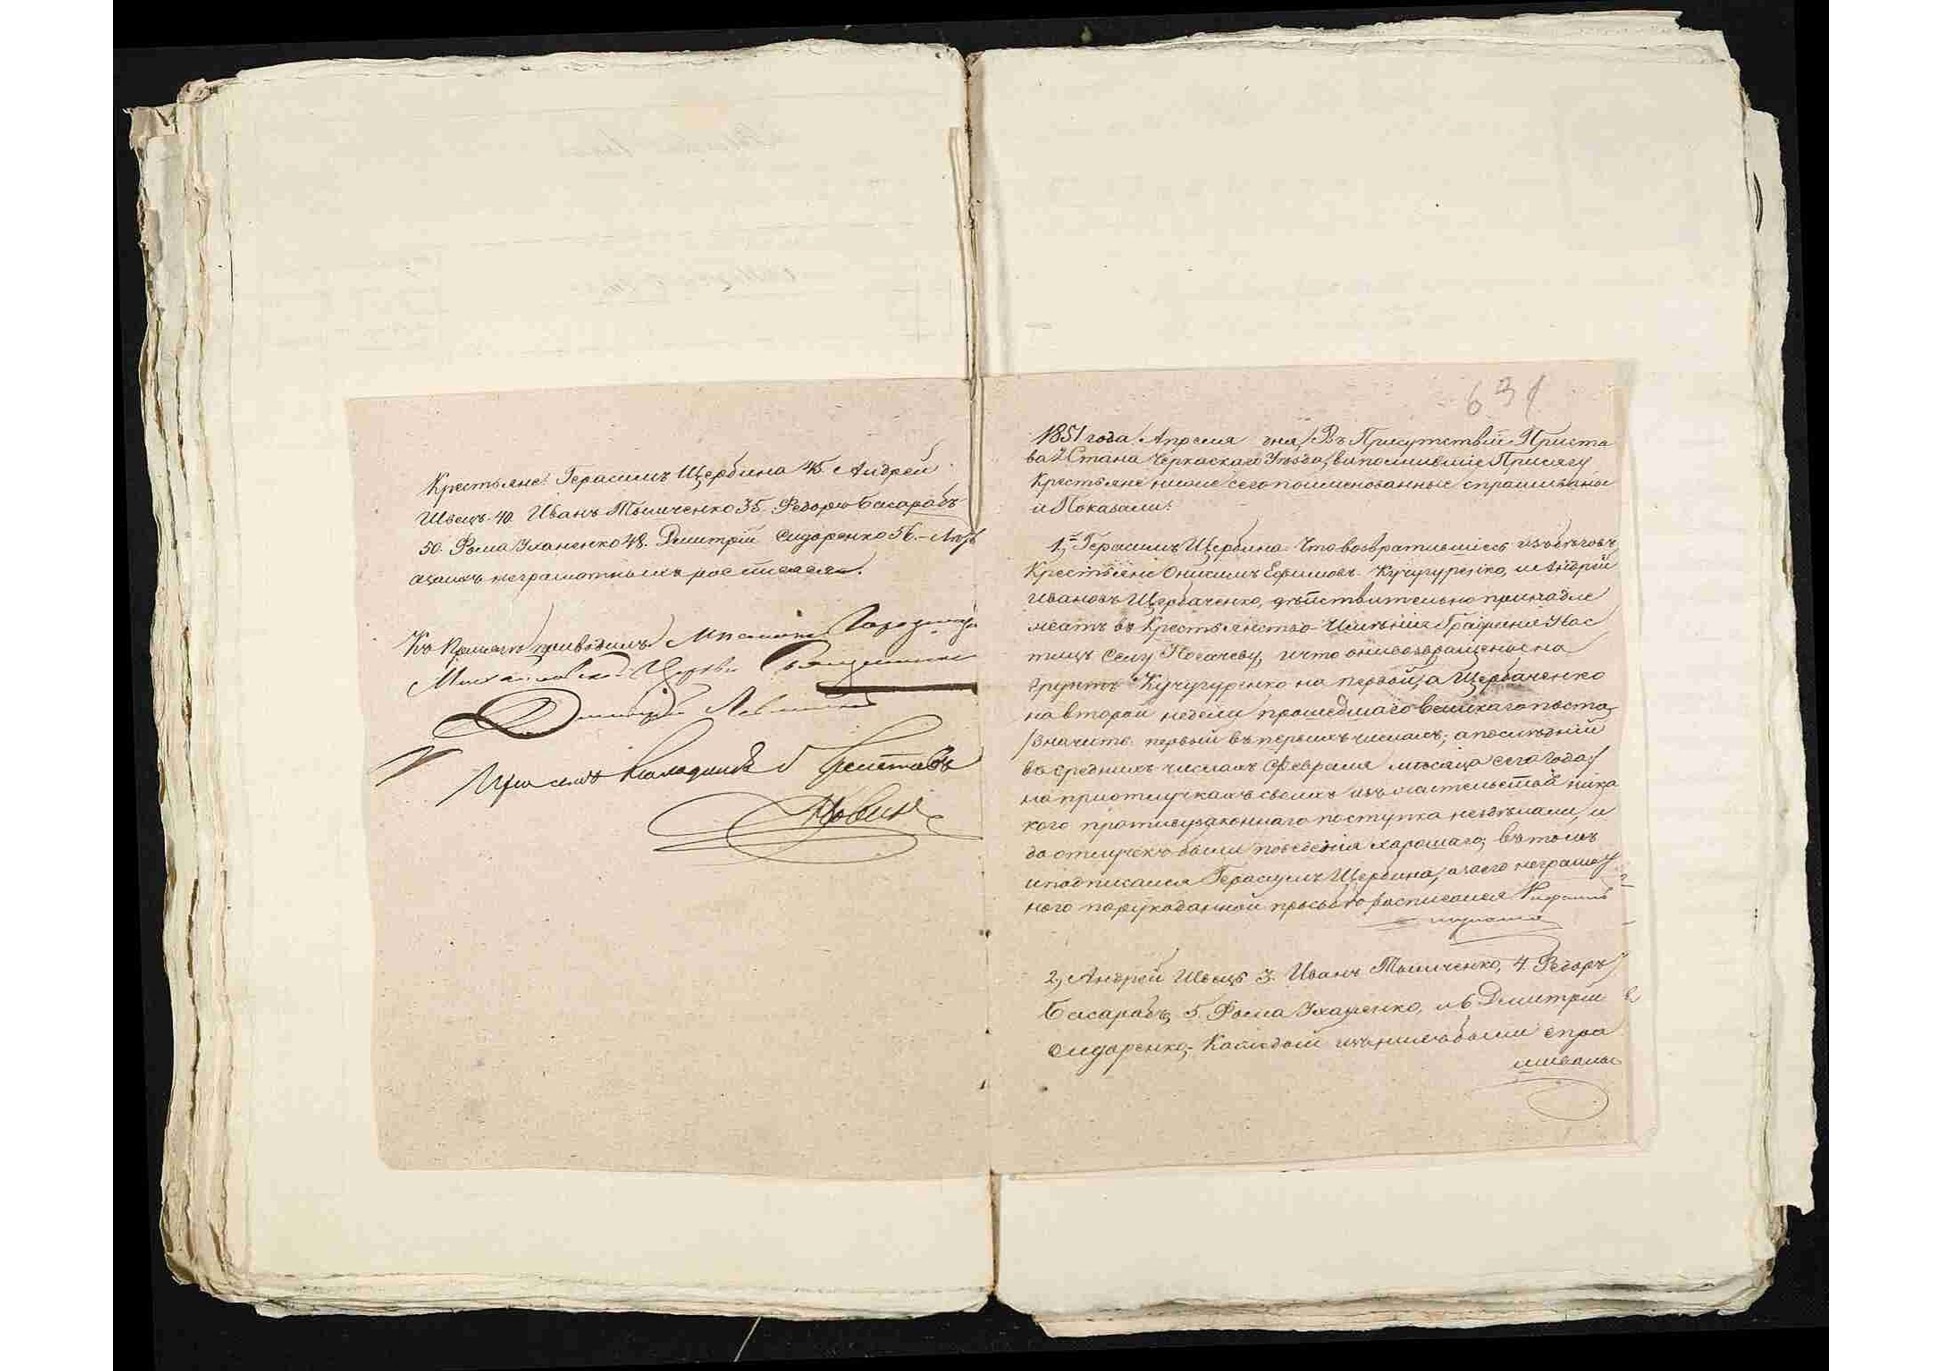 Крестьяне: Герасимъ Щербина 45. Андрей
Швецъ 40. Иванъ Тымченко 35. Федоръ Басарабъ
50. Фома Уханенко 48. Дмитрій Сидоренко 56.
азаихъ неграмотныхъ росписался.
Къ Присягѣ приводилъ Мѣстечка Городища
Михайловской Церкви Священникъ
Дмитрій
При семъ находился Приставъ
631
1851 года Апреля дня, Въ Присутствіи Приста
ва 2 Стана Черкаскаго Уѣзда, выполнившіе Присягу
Крестьяне ниже сего поименованные спрашиваны
и Показали:
1, Герасимъ Щербина. Что возвратившіеся изъ бѣговъ
Крестьяне Онисимъ Ефимовъ Кучугуренко, и Андрей
Ивановъ Щербаченко, дѣйствительно принадле
жатъ въ Крестьянство Имѣнія Графини Нос
тицъ Селу Носачеву, и что они возвращенные на
грунтъ Кучугуренко на первой, а Щербаченко
на второй недели прошедшаго великаго поста,
/значитъ первый въ первыхъ числахъ, а послѣдній
въ среднихъ числахъ Февраля мѣсяца сего года/
но при отлучкахъ своихъ изъ жительства ника
кого противузаконнаго поступка нездѣлали, и
до отлучекъ были поведенія харошаго, въ томъ
и подписался Герасимъ Щербина, а заего неграмот
ного порукоданной прозбѣ росписался
2, Андрей Швецъ 3. Иванъ Тымченко, 4. Федоръ
Басарабъ, 5. Фома Уханенко, и 6 Дмитрій
Сидоренко, Каждый изъ нихъ были спра
шиваны